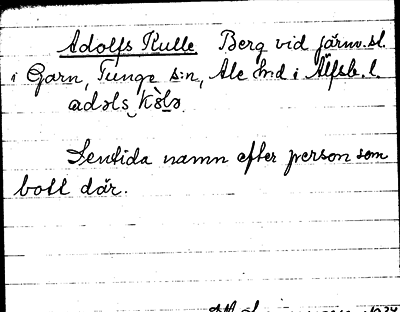 Adolfs Kulle Berg vid järnv.sl.
i Garn, Tunge s:n, Ale hd i Älfsb. l.
Sentida namn efter person som
bott där.